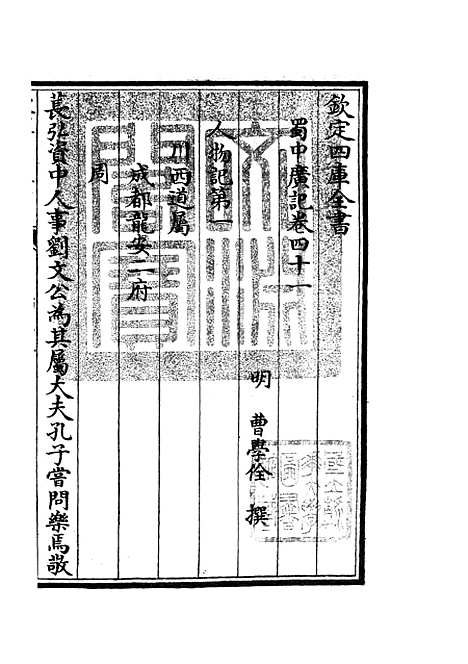 欽定四庫全書
蜀中廣記卷四十一
明 曹學佺 撰
人物記第一
川西道屬
成都龍安二府
周
萇弘資中人事劉文公為其屬大夫孔子嘗問樂焉敬